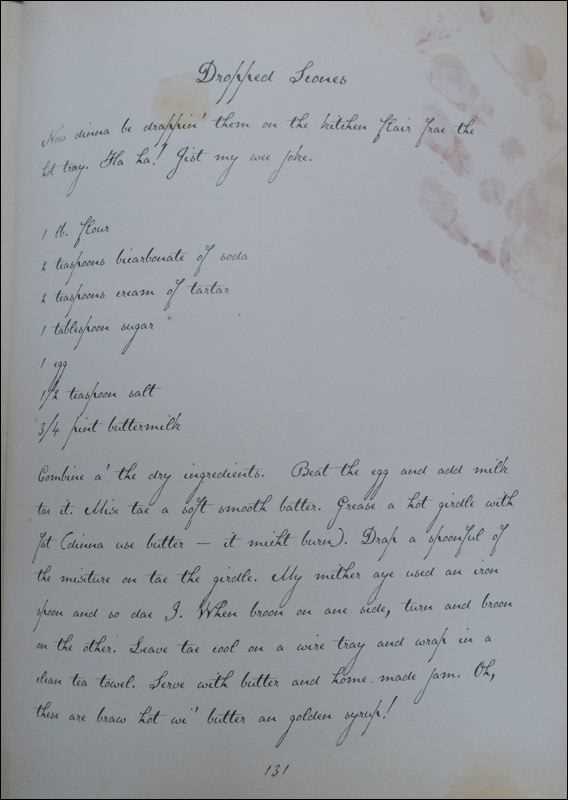 Dropped Scones
Noo dinna be drappin' them on the kitchen flair frae the
hot tray. Ha ha! Jist my wee joke.
1 lb. flour
2 teaspoons bicarbonate of soda
2 teaspoons cream of tartar
1 tablespoon sugar
1 egg
1/2 teaspoon salt
3/4 pint buttermilk
Combine a' the dry ingredients. Beat the egg and add milk
tae it. Mix tae a soft smooth batter. Grease a hot girdle with
fat (dinna use butter – it micht burn). Drap a spoonful of
the mixture on tae the girdle. My mither aye used an iron
spoon and so dae I. When broon on ane side, turn and broon
on the other. Leave tae cool on a wire tray and wrap in a
clean tea towel. Serve with butter and home-made jam. Oh,
these are braw hot wi' butter an golden syrup!
131